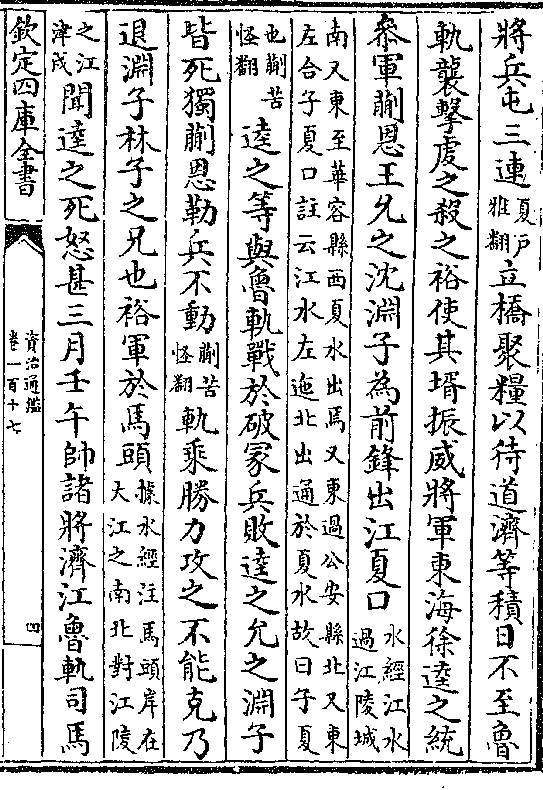 將兵屯三連夏戶雅翻立橋聚糧以待道濟等積日不至魯
軌襲擊虔之殺之裕使其壻振威將軍東海徐逵之統
叅軍蒯恩王允之沈淵子為前鋒出江夏口水經江水過江陵城
南又東至華容縣西夏水出焉又東過公安縣北又東左合子夏口註云江水左迤北出通於夏水故曰子夏
也蒯苦怪翻逵之等與魯軌戰於破冢兵敗逵之允之淵子
皆死獨蒯恩勒兵不動蒯苦怪翻軌乘勝力攻之不能克乃
退淵子林子之兄也裕軍於馬頭據水經注馬頭岸在大江之南北對江陵
之江津戍聞逵之死怒甚三月壬午帥諸將濟江魯軌司馬
欽定四庫全書
資治通鑑
卷一百十七
四